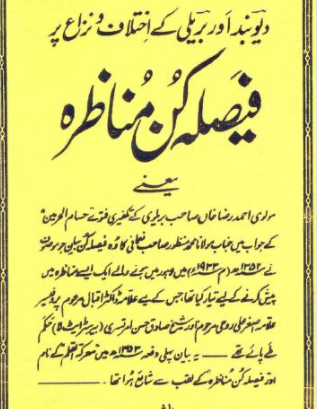 دیوبند اور بریلی کے اختلاف و نزاع پر
فیصلہ کُن مُناظرہ
یعنے
مولوی احمد رضا خاں صاحب بریلوی کے تکفیری فتوے حسام الحرمین
کے جواب میں جناب مولانا محمد منظور صاحب نعمانی کا وہ فیصلہ کن بیان جو موصوف
نے ۱۳۵۲ھ (م ۱۹۳۳ء) میں لاہور میں ہونے والے ایک ایسے مناظرہ میں
پیش کرنے کے لیے تیار کیا تھا جس کے لیے علامہ ڈاکٹر اقبال مرحوم پروفیسر
علامہ اصغر علی روحی مرحوم اور شیخ صادق حسن امرتسری (بیرسٹر ایٹ لا) حکم
طے پائے تھے — یہ بیان پہلی دفعہ ۱۳۵۳ھ میں معرکۃ القلم کے نام
اور فیصلہ کن مناظرہ کے لقب سے شائع ہوا تھا۔